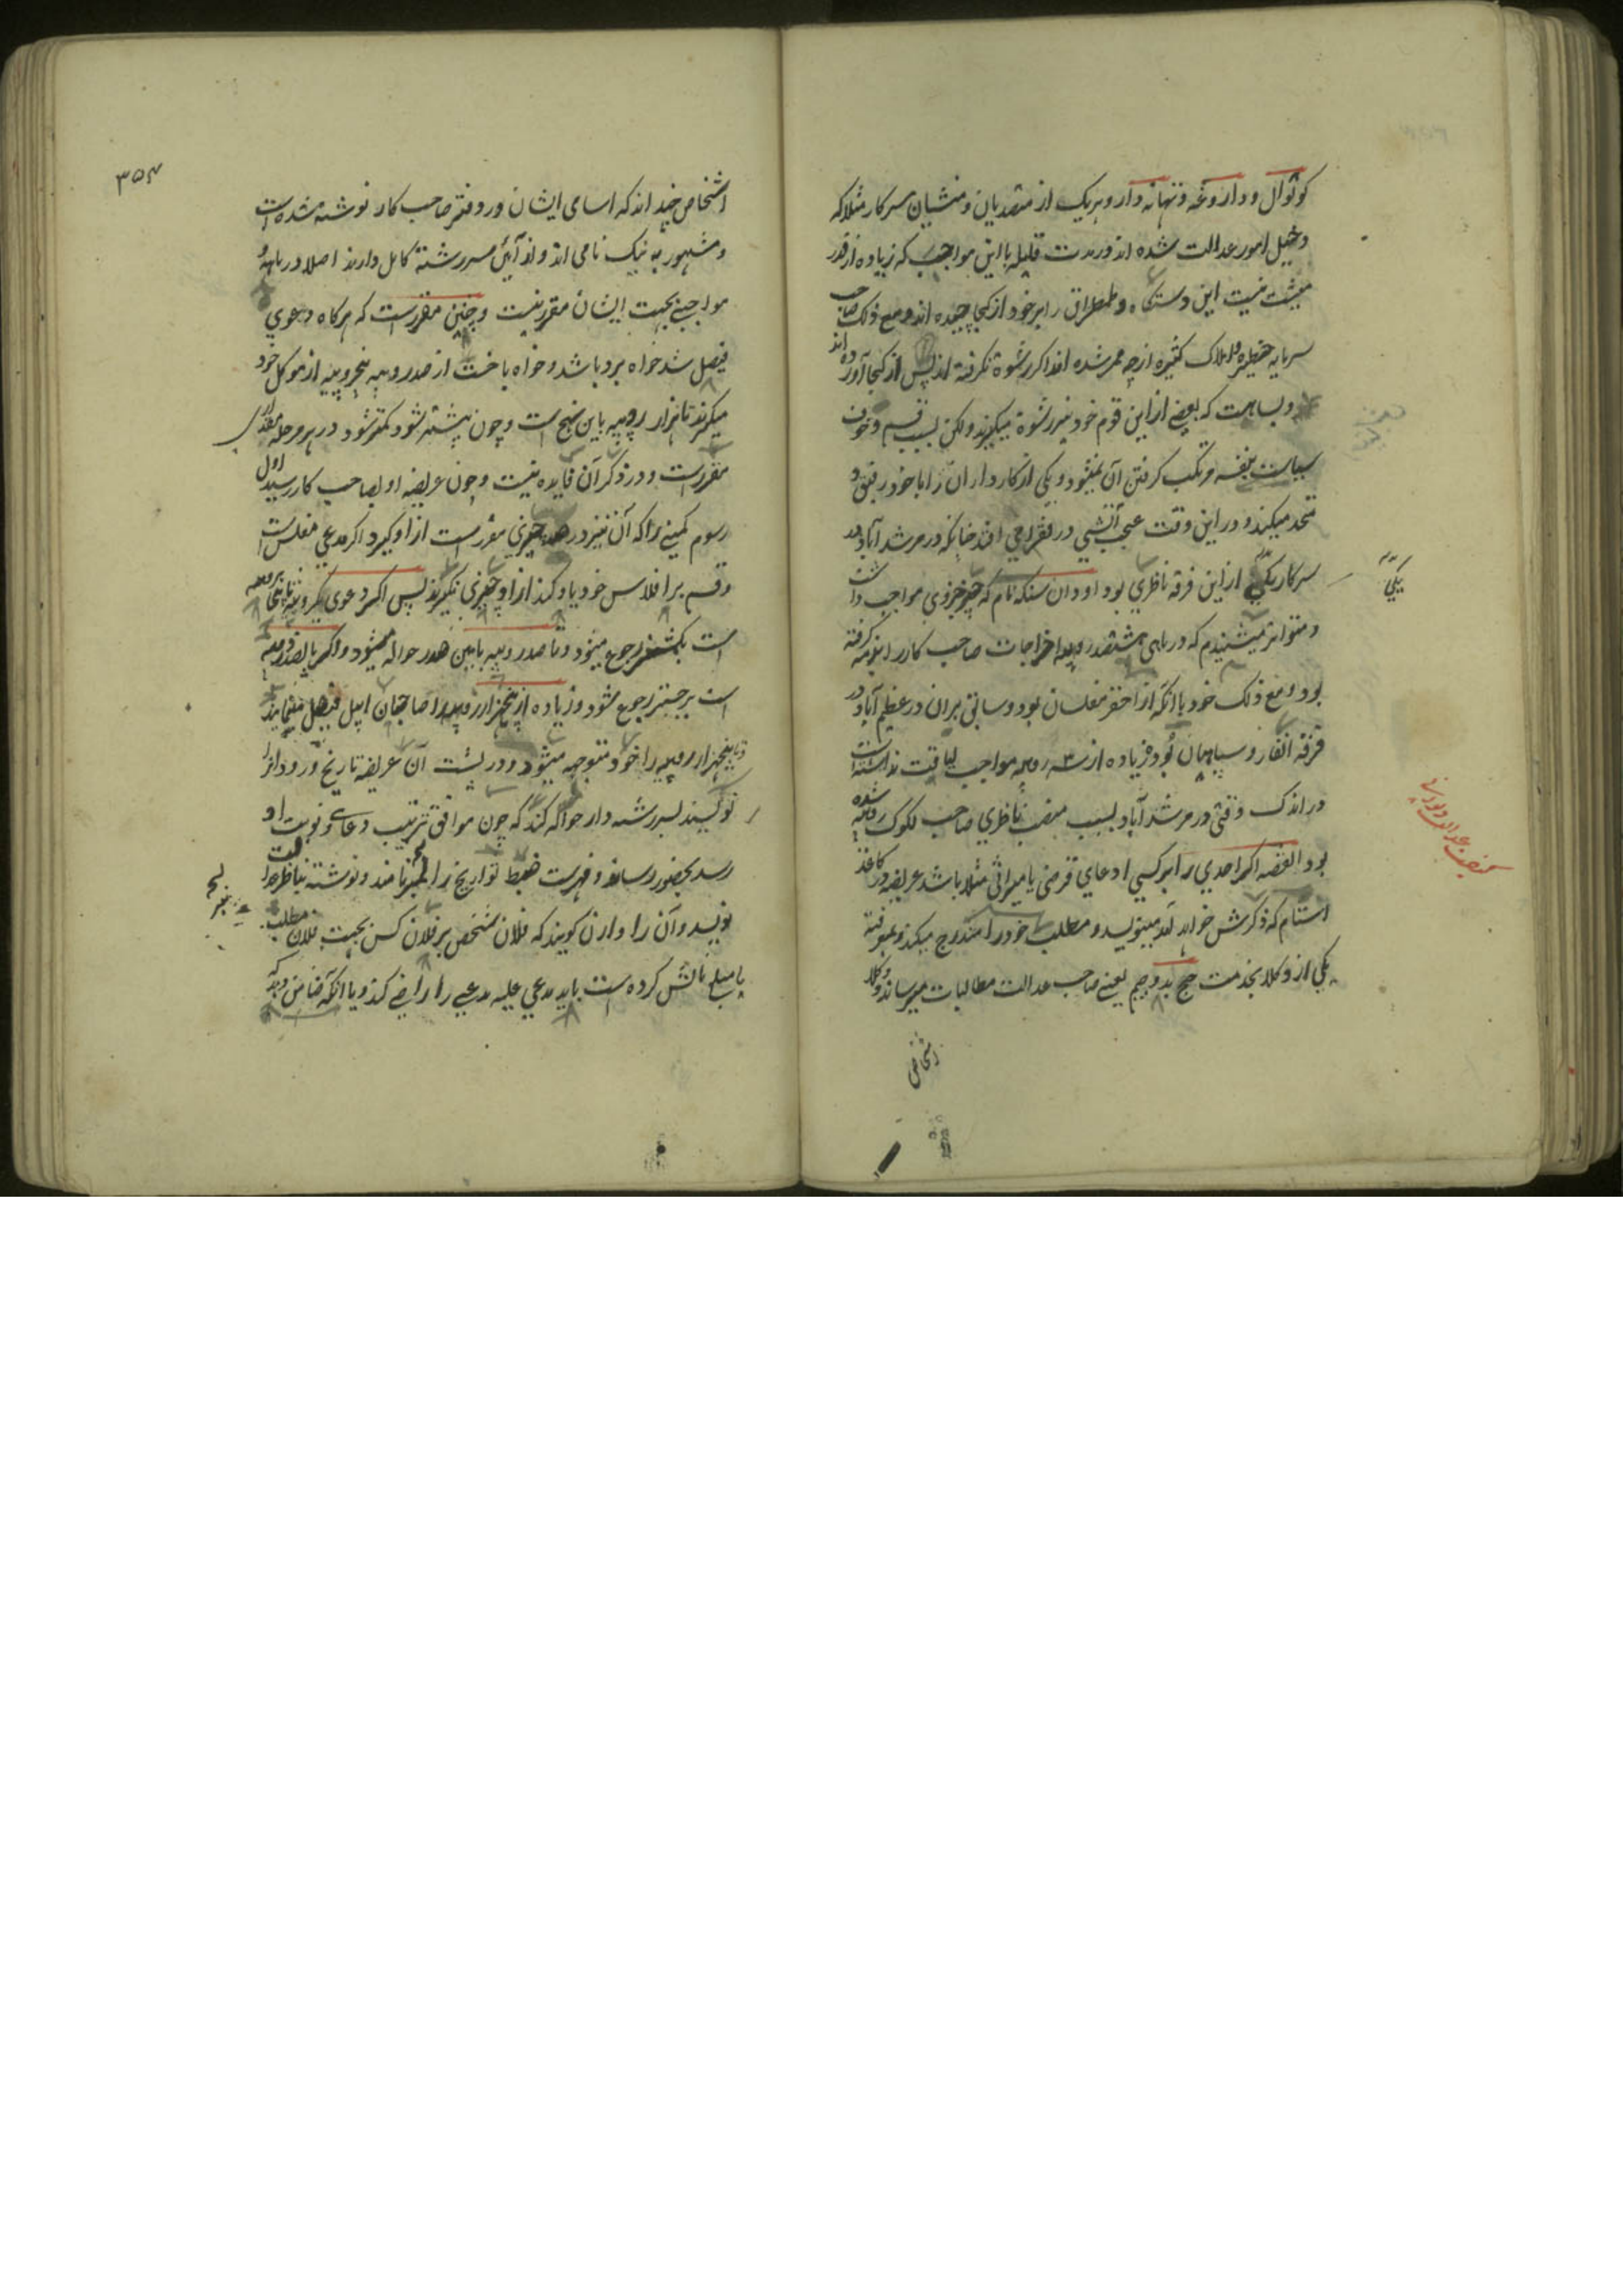 کوتوال و داروغه و تهانه دار و هریک از متصدیان و منشیان سرکار مثلا که
دخیل امور عدالت شده اند در مدت قلیله با این مواجب که زیاده از قدر
معیشت نیست این دستگاه و طمطراق را بر خود از کجا چیده اند و مع ذلک صاحب
سرمایه خطیره و املاک کثیره از چه ممر شده اند اگر رشوة نگرفته اند پس از کجا آورده اند
و بسا هست که بعضی از این قوم خود نیز رشوة میگیرند ولکن بسبب قسم و خوف
سیاست بنفسه مرتکب گرفتن آن نمیشود و یکی از کارداران را با خود رفیق و
متحد میکند و در این وقت عجب آتشی در فقرا می افتد چنانکه در مرشدآباد در
سرکار یکی از این فرقه ناظری بود اودان سنکه نام که جزوی مواجب داشت
و متواتر میشنیدم که در ماهی هشتصد روپیه اخراجات صاحب کار را بذمه گرفته
بود و مع ذلک خود با آنکه از احقر مفلسان بود و سابق بر ان در عظیم آباد در
فرقه انفار و سپاهیان بود و زیاده از سه روپیه مواجب لیاقت نداشت
در اندک وقتی در مرشدآباد بسبب منصب ناظری صاحب لکوک روپیه شده
بود القصه اگر احدی را بر کسی ادعای قرضی یا میراثی مثلا باشد عریضه در کاغذ
استام که ذکرش خواهد آمد مینویسد و مطلب خود را مندرج میکند و بمعرفت
یکی از وکلا بخدمت جج بدو جیم یعنی صاحب عدالت مطالبات میرساند و وکلا
اشخاص
یکی
۳۵۴
اشخاص چند اند که اسامی ایشان در دفتر صاحب کار نوشته شده است
و مشهور به نیک نامی اند و از آیین سررشته کامل دارند اصلا در ماهه و
مواجبی بجهت ایشان مقرر نیست و چنین مقررست که هرگاه دعوی
فیصل شد خواه برد باشد و خواه باخت از صد روپیه پنج روپیه از موکل خود
میگیرند تا هزار روپیه باین نهج است و چون بیشتر شود کمتر شود در هر مرحله مقداری
مقررست و در ذکر آن فایده نیست و چون عریضه او بصاحب کار رسید اول
رسوم کمپنی را که آن نیز در هر چیزی مقررست از او گیرد اگر مدعی مفلس است
و قسم بر افلاس خود یاد کند از او چیزی نگیرند پس اگر دعوی یکروپیه تا پنجاه روپیه
است بکمشنر رجوع میشود و تا صد روپیه بامین صدر حواله میشود و اگر پانصد روپیه
است برجستر رجوع شود و زیاده از پنجهزار روپیه را صاحبان اپیل فیصل مینمایند
و تا پنجهزار روپیه را خود متوجه میشود و در پشت آن عریضه تاریخ ورود انرا
نویسند بسررشته دار حواله کند که چون موافق ترتیب دعاوی نوبت او
رسد بحضور رساند و فهرست ضبط تواریخ را نمبر نامند و نوشته بناظر عدالت
نویسد و آن را وارن گویند که فلان شخص بر فلان کس بجهت فلان مطلب
یا مبلغ نالش کرده است باید مدعی علیه مدعی را راضی کند و یا آنکه ضامن دهد که